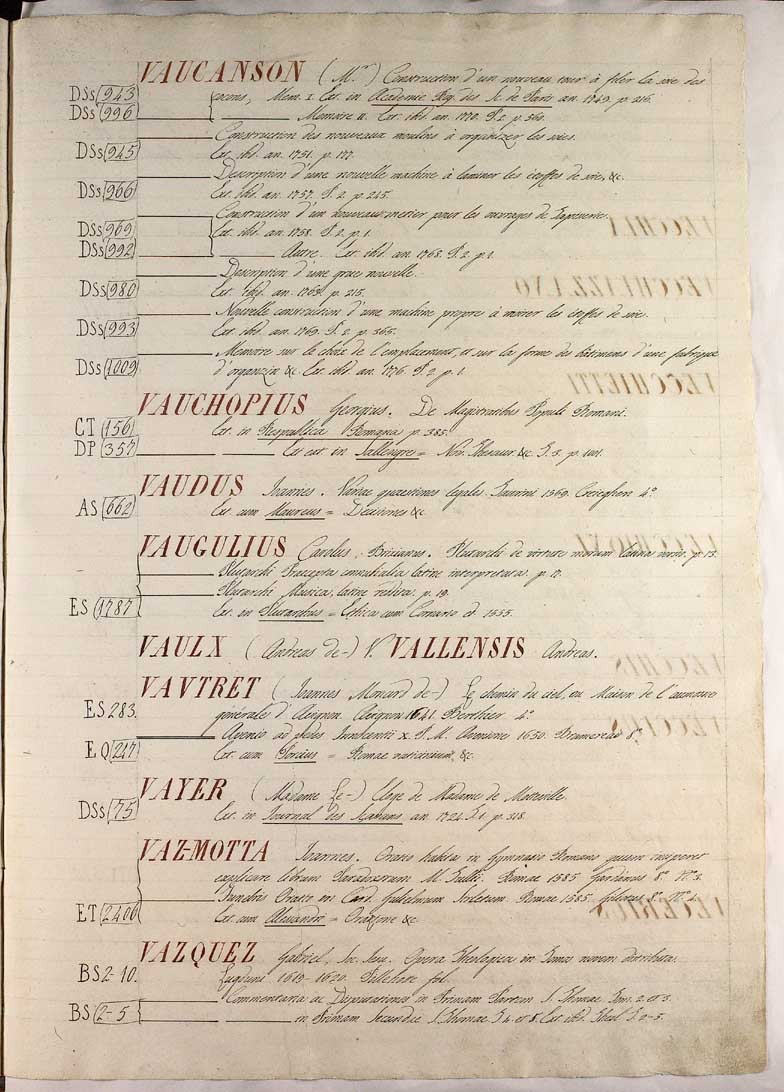 VAUCANSON (M.r) Construction d'un nouveau tour à filer la soie des
DSs 943 cocons, Mem. I. Ext. in Academie Roy. des Sc. de Paris an. 1749. p. 216.
DSs 996 Memoire II. Ext. ibid. an. 1770. P. 2. p. 360.
Construction des nouveaux moulins à organizer les soies.
DSs 945 Ext. ibid. an. 1751. p. 177.
Description d'une nouvelle machine à laminer les étoffes de soie, &c.
DSs 966 Ext. ibid. an. 1757. P. 2. p. 245.
Construction d'un nouveau metier pour les ouvrages de Tapisserie.
DSs 969 Ext. ibid. an. 1758. P. 2. p. 1.
DSs 992 Autre. Ext. ibid. an. 1768. P. 2. p. 1.
Description d'une grue nouvelle.
DSs 980 Ext. ibid. an. 1763. p. 215.
Nouvelle construction d'une machine propre à moirer les étoffes de soie.
DSs 993 Ext. ibid. an. 1769. P. 2. p. 365.
Memoire sur le choix de l'emplacement, et sur la forme des bâtimens d'une fabrique
DSs 1009 d'organzin &c. Ext. ibid. an. 1776. P. 2. p. 1.
VAUCHOPIUS Georgius. De Magistratibus Populi Romani.
CT 156 Ext. in Respublica Romana p. 385.
DP 357 Ext. est. in Sallengre = Nov. Thesaur. &c. T. 3. p.
VAUDUS Joannes. Variae quaestiones legales. Taurini 1569. 4.°
AS 662 Ext. cum Maureus = Decisiones &c.
VAUGULIUS Carolus, Brixianus. Plutarchi de virtute morum Latina versio. p. 15.
Plutarchi Praecepta connubialia latine interpretata. p. 17.
Plutarchi Musica, latine reddita. p. 19.
ES 1787 Ext. in Plutarchus = Ethica cum Cornario ed. 1555.
VAULX (Andreas de-) V. VALLENSIS Andreas.
VAVTRET (Joannes Monard de-) Le chemin du ciel, ou Maison de l'aumone
ES 283. générale d'Avignon. Avignon 1641. Berthier 4.°
Avenio ad pedes Innocentii X. P. M. Avenione 1650. Bramereau 8.°
EQ 247 Ext. cum Porcius = Romae &c.
VAYER (Madame Le-) Eloge de Madame de Motteville.
DSs 75 Ext. in Journal des Scavans an. 1724. T. 1. p. 318.
VAZ-MOTTA Joannes. Oratio habita in Gymnasio Romano quum inciperet
explicare librum Paradoxorum M. Tullii. Romae 1585 Gardanus 8.° N.° 2.
Funebris Oratio in Card. Gulielmum Sirletum. Romae 1585. 8.° N.° 1.
ET 2406 Ext. cum Alexandri = Oratione &c.
VAZQUEZ Gabriel, Soc. Jesu. Opera Theologica in Tomos novem distributa.
BS 2-10. Lugduni 1619-1620. Pillehotte fol.
Commentaria ac Disputationes in Primam Partem S. Thomae Tom. 2. et 3.
BS 2-5 in Primam Secundae S. Thomae T. 4. et 5. Ext. ibid. Theol. T. 2-5.